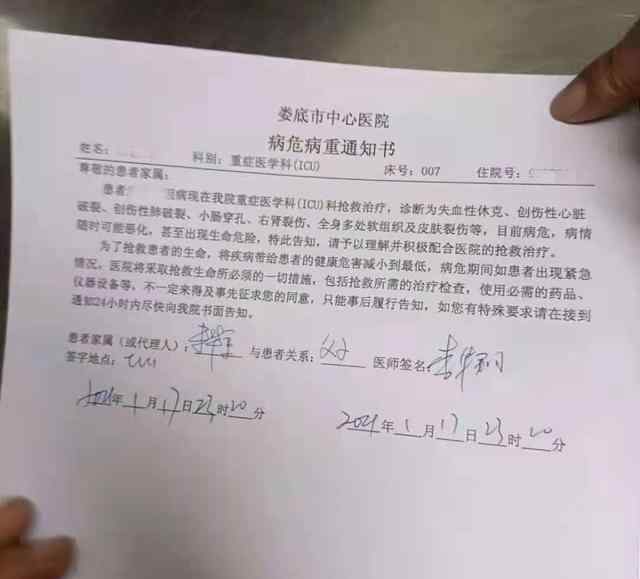 娄底市中心医院
病危病重通知书
姓名: 科别: 重症医学科(ICU) 床号: 007 住院号:
尊敬的患者家属:
患者: 因病现在我院重症医学科(ICU)科抢救治疗，诊断为失血性休克、创伤性心脏
破裂、创伤性肺破裂、小肠穿孔、右肾裂伤、全身多处软组织及皮肤裂伤等，目前病危，病情
随时可能恶化，甚至出现生命危险，特此告知，请予以理解并积极配合医院的抢救治疗。
为了抢救患者的生命，将疾病带给患者的健康危害减小到最低，病危期间如患者出现紧急
情况，医院将采取抢救生命所必须的一切措施，包括抢救所需的治疗检查，使用必需的药品、
仪器设备等，不一定来得及事先征求您的同意，只能事后履行告知，如您有特殊要求请在接到
通知24小时内尽快向我院书面告知。
患者家属（或代理人）: 与患者关系: 父子 医师签名:
签字地点: ICU
2021年1月17日23时20分
2021年1月17日23时20分